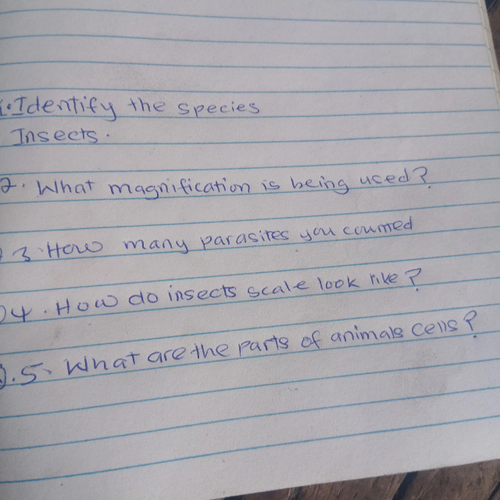 1. Identify the species
Insects.
2. What magnification is being used?
Q 3. How many parasites you counted
Q4. How do insects scale look like?
Q.5. What are the parts of animals cells?